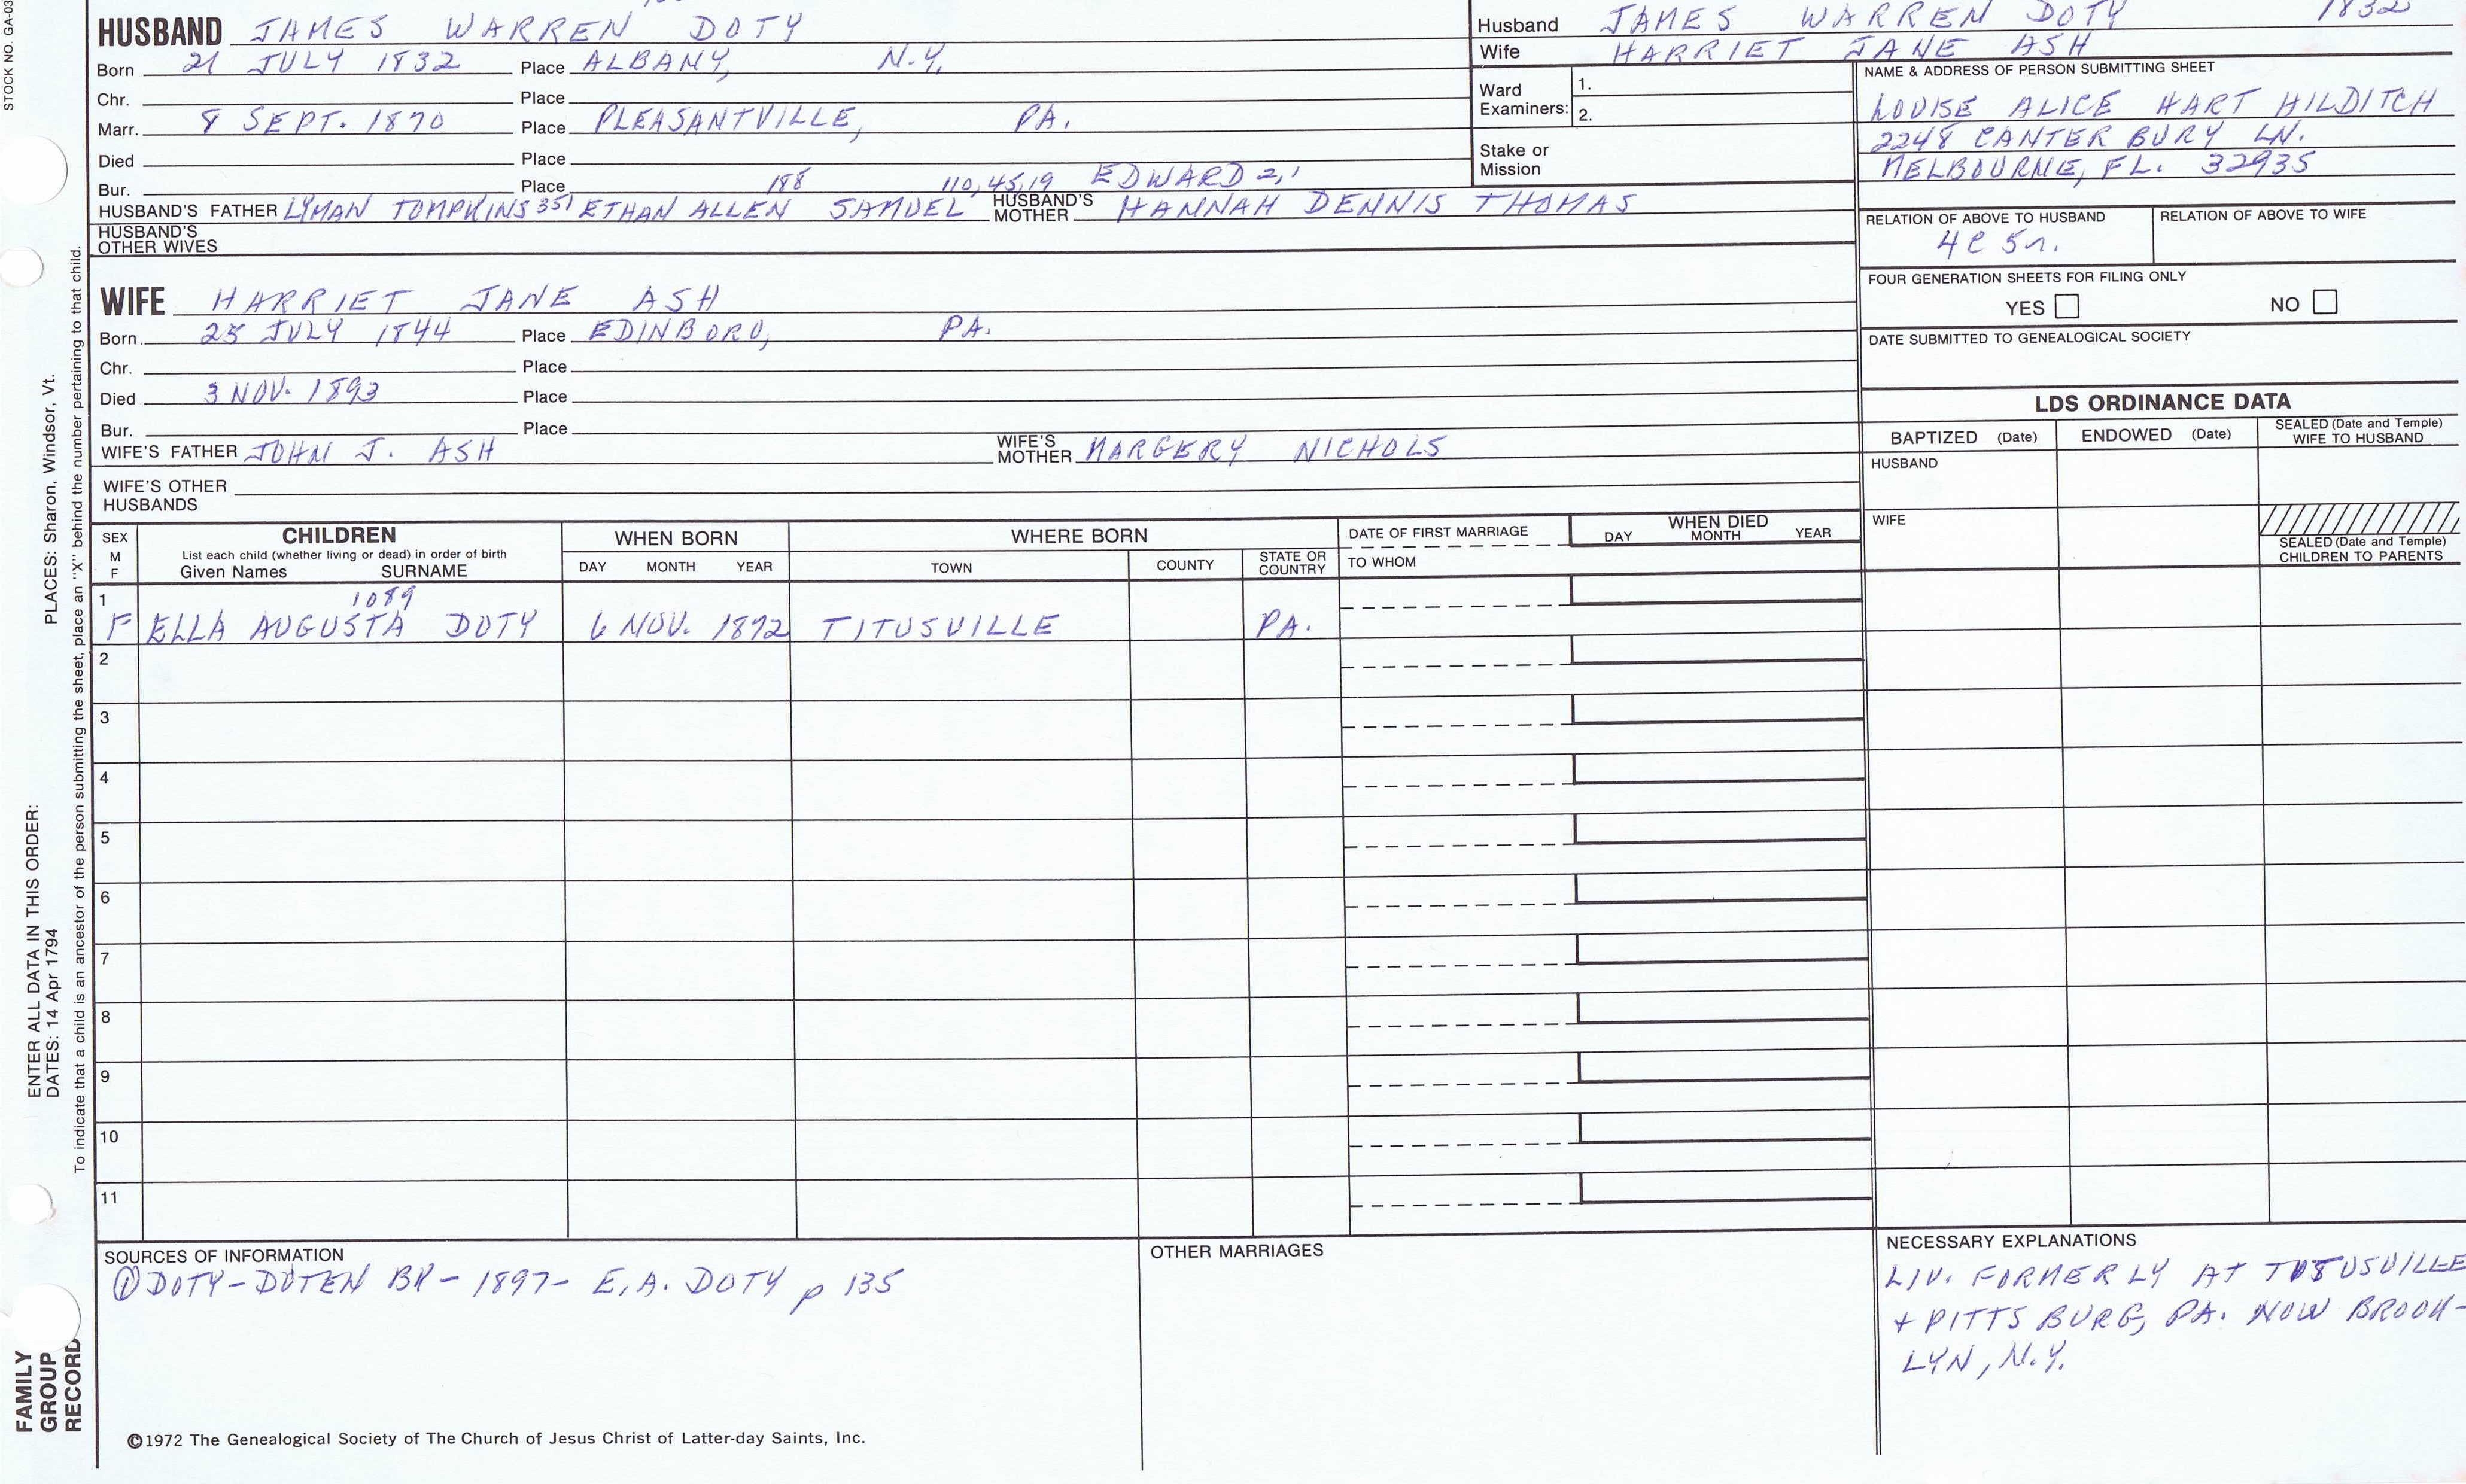 STOCK NO. GA-03
HUSBAND JAMES WARREN DOTY
Born 21 JULY 1832 Place ALBANY, N.Y.
Chr. Place
Marr. 8 SEPT. 1870 Place PLEASANTVILLE, PA.
Died Place
Bur. Place
188 110,45,19 EDWARD 2,1
HUSBAND'S FATHER LYMAN TOMPKINS 351 ETHAN ALLEN SAMUEL HUSBAND'S MOTHER HANNAH DENNIS THOMAS
HUSBAND'S OTHER WIVES
Husband JAMES WARREN DOTY 1832
Wife HARRIET JANE ASH
Ward Examiners: 1.
2.
Stake or Mission
NAME & ADDRESS OF PERSON SUBMITTING SHEET
LOUISE ALICE HART HILDITCH
2248 CANTER BURY LN.
MELBOURNE, FL. 32935
RELATION OF ABOVE TO HUSBAND RELATION OF ABOVE TO WIFE
4C 5r.
FOUR GENERATION SHEETS FOR FILING ONLY
YES NO
DATE SUBMITTED TO GENEALOGICAL SOCIETY
WIFE HARRIET JANE ASH
Born 25 JULY 1844 Place EDINBORO, PA.
Chr. Place
Died 3 NOV. 1893 Place
Bur. Place
WIFE'S FATHER JOHN J. ASH WIFE'S MOTHER MARGERY NICHOLS
WIFE'S OTHER HUSBANDS
LDS ORDINANCE DATA
BAPTIZED (Date) ENDOWED (Date) SEALED (Date and Temple) WIFE TO HUSBAND
HUSBAND
WIFE
SEALED (Date and Temple) CHILDREN TO PARENTS
SEX M F
CHILDREN
List each child (whether living or dead) in order of birth
Given Names SURNAME
WHEN BORN
DAY MONTH YEAR
WHERE BORN
TOWN COUNTY STATE OR COUNTRY
DATE OF FIRST MARRIAGE
TO WHOM
WHEN DIED
DAY MONTH YEAR
1 1089
F ELLA AUGUSTA DOTY 6 NOV. 1872 TITUSVILLE PA.
2
3
4
5
6
7
8
9
10
11
SOURCES OF INFORMATION
① DOTY-DOTEN BK - 1897 - E.A. DOTY p 135
OTHER MARRIAGES
NECESSARY EXPLANATIONS
LIV. FORMERLY AT TITUSVILLE
+ PITTS BURG, PA. NOW BROOK-
LYN, N.Y.
©1972 The Genealogical Society of The Church of Jesus Christ of Latter-day Saints, Inc.
FAMILY
GROUP
RECORD
ENTER ALL DATA IN THIS ORDER:
DATES: 14 Apr 1794
PLACES: Sharon, Windsor, Vt.
To indicate that a child is an ancestor of the person submitting the sheet, place an "X" behind the number pertaining to that child.